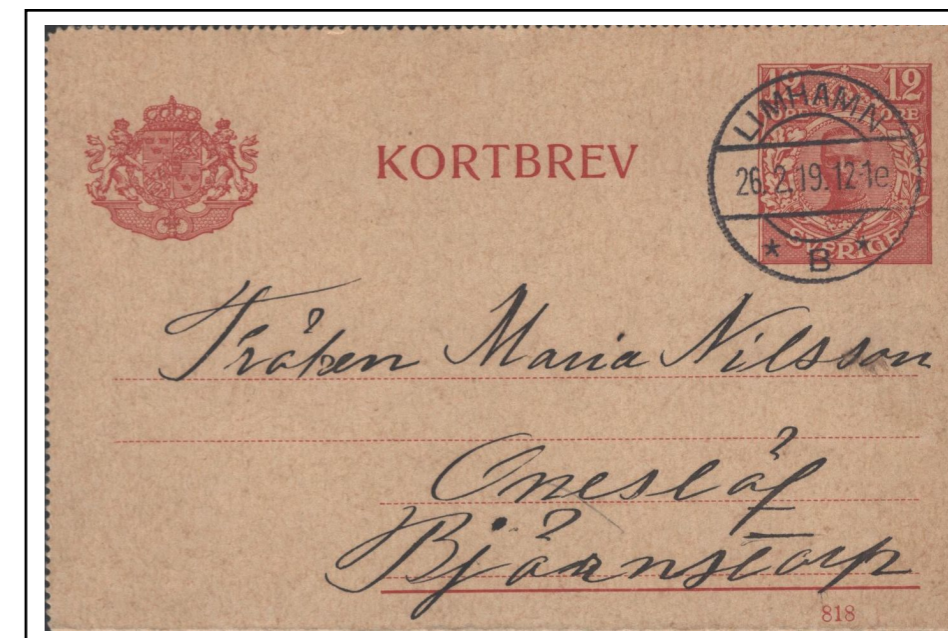 KORTBREV
12 12
ÖRE ÖRE
LIMHAMN
26.2.19.12-1e
* B *
SVERIGE
Fröken Maria Nilsson
Oneslöf
Björnstorp
818